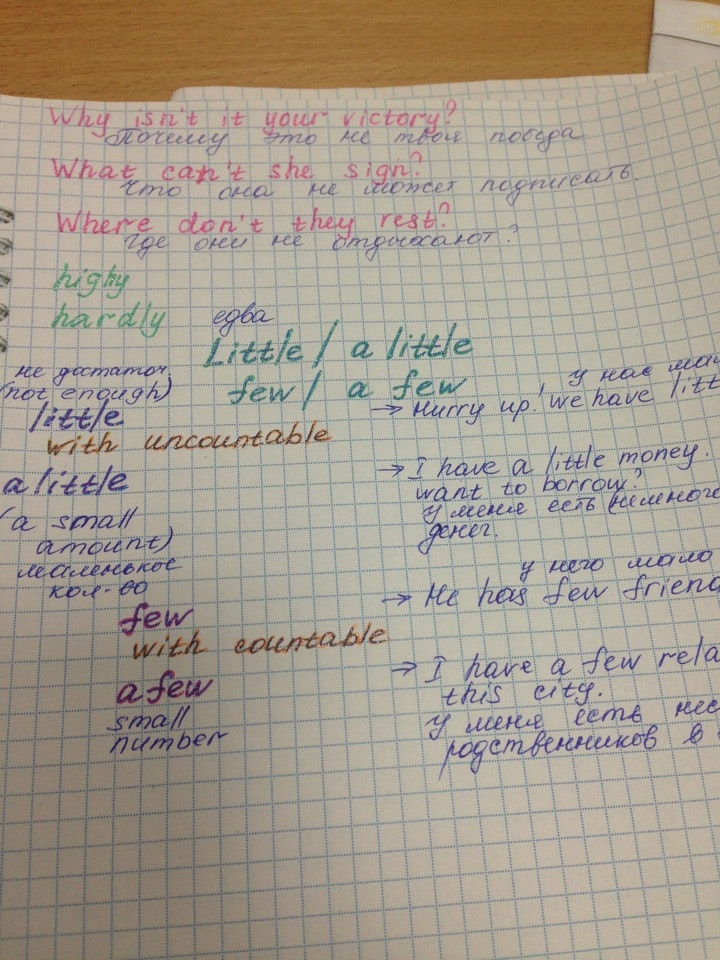 Why isn't it your victory?
Почему это не твоя победа
What can't she sign?
Что она не может подписать.
Where don't they rest?
Где они не отдыхают?
highy
hardly едва
Little / a little
few / a few
не достаточ.
(not enough)
little
with uncountable
у нас
→ Hurry up! we have
a little
(a small
amount)
маленькое
кол-во
→ I have a little money.
want to borrow?
у меня есть (немного
денег.
few
with countable
у него мало
→ He has few
a few
small
number
→ I have a few
this city.
у меня есть
родственников в